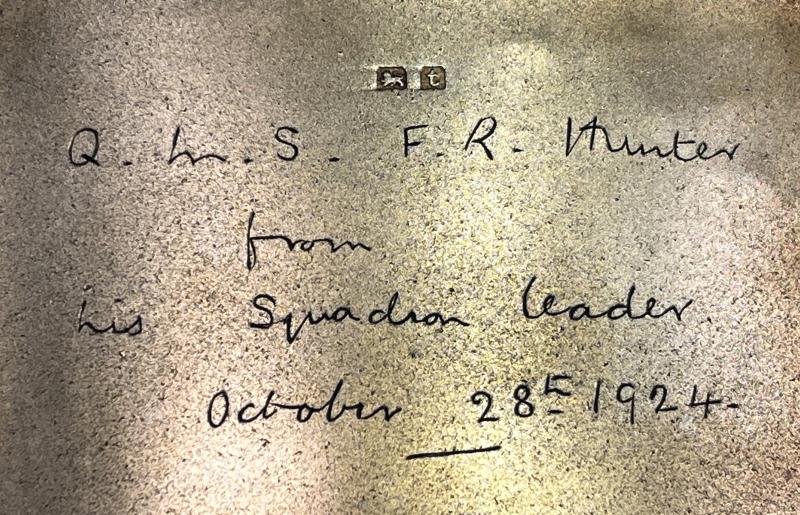 t
Q. M. S. F. R. Hunter
from
his Squadron Leader.
October 28th 1924.